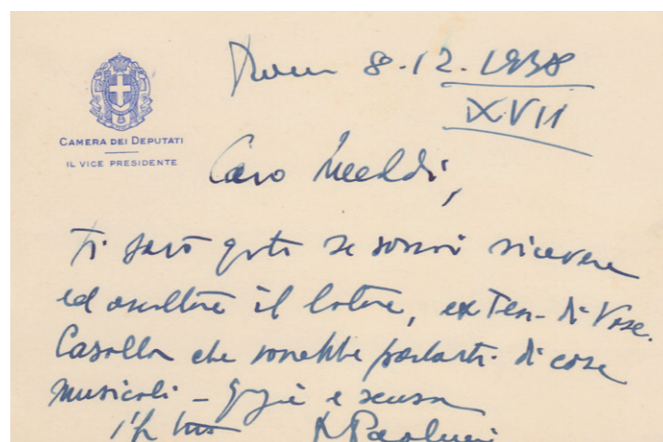 CAMERA DEI DEPUTATI
IL VICE PRESIDENTE
Roma 8.12.1938
XVII
Caro
ti sarò grato se vorrai ricevere
ed ascoltare il latore, ex Ten. di Vasc.
Casella che vorrebbe parlarti di cose
musicali - grazie e scusa
Paolucci